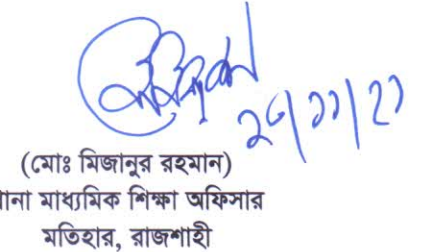 ২৩/১১/২১
(মোঃ মিজানুর রহমান)
মাধ্যমিক শিক্ষা অফিসার
মতিহার, রাজশাহী